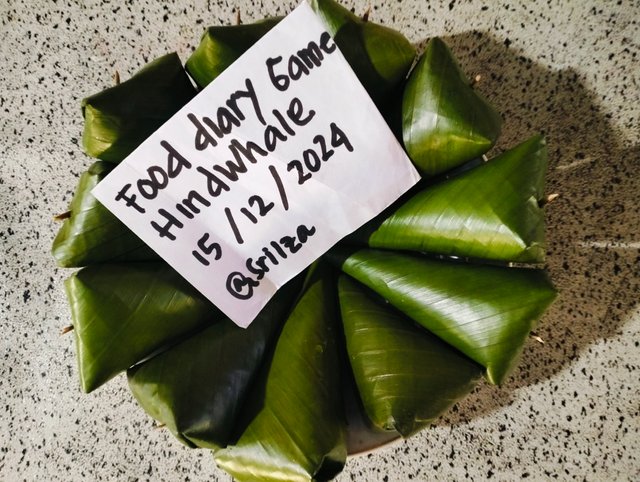 Food diary Game
Hindwhale
15/12/2024
@sriiza